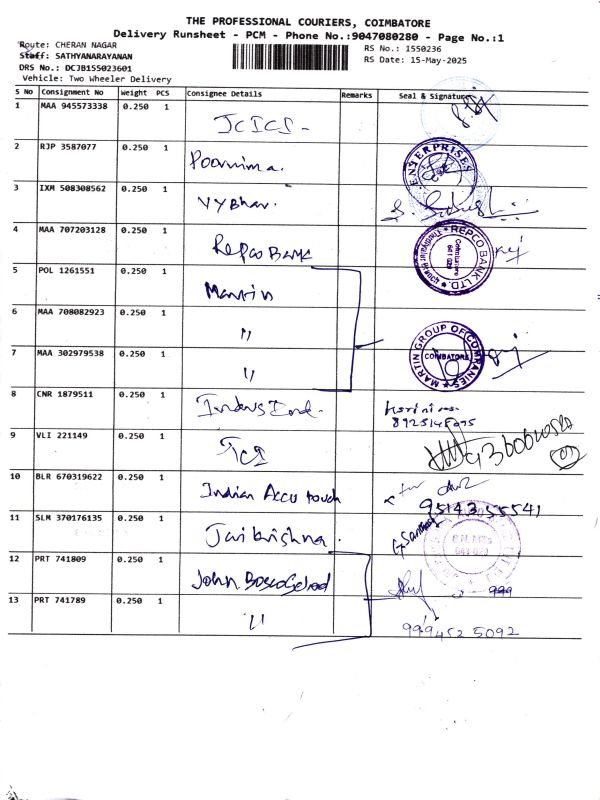 THE PROFESSIONAL COURIERS, COIMBATORE
Delivery Runsheet - PCM - Phone No.:9047080280 - Page No.:1
Route: CHERAN NAGAR
RS No.: 1550236
Staff: SATHYANARAYANAN
RS Date: 15-May-2025
DRS No.: DCJB155023601
Vehicle: Two Wheeler Delivery
S No Consignment No Weight PCS Consignee Details Remarks Seal & Signature
1 MAA 945573338 0.250 1
2 RJP 3587077 0.250 1 Poornima.
ENTERPRISES
3 IXM 508308562 0.250 1 Vybhav.
4 MAA 707203128 0.250 1 Repco Bank
REPCO BANK LTD.
Coimbatore
641 029
5 POL 1261551 0.250 1 Martin
6 MAA 708082923 0.250 1 "
7 MAA 302979538 0.250 1 "
MARTIN GROUP OF COMPANIES
COIMBATORE
8 CNR 1879511 0.250 1 IndusInd-
8925148095
9 VLI 221149 0.250 1
10 BLR 670319622 0.250 1 Indian Accu touch
95143 55541
11 SLM 370176135 0.250 1 Jai krishna.
12 PRT 741809 0.250 1 John Bosco
999
13 PRT 741789 0.250 1 "
999452 5092